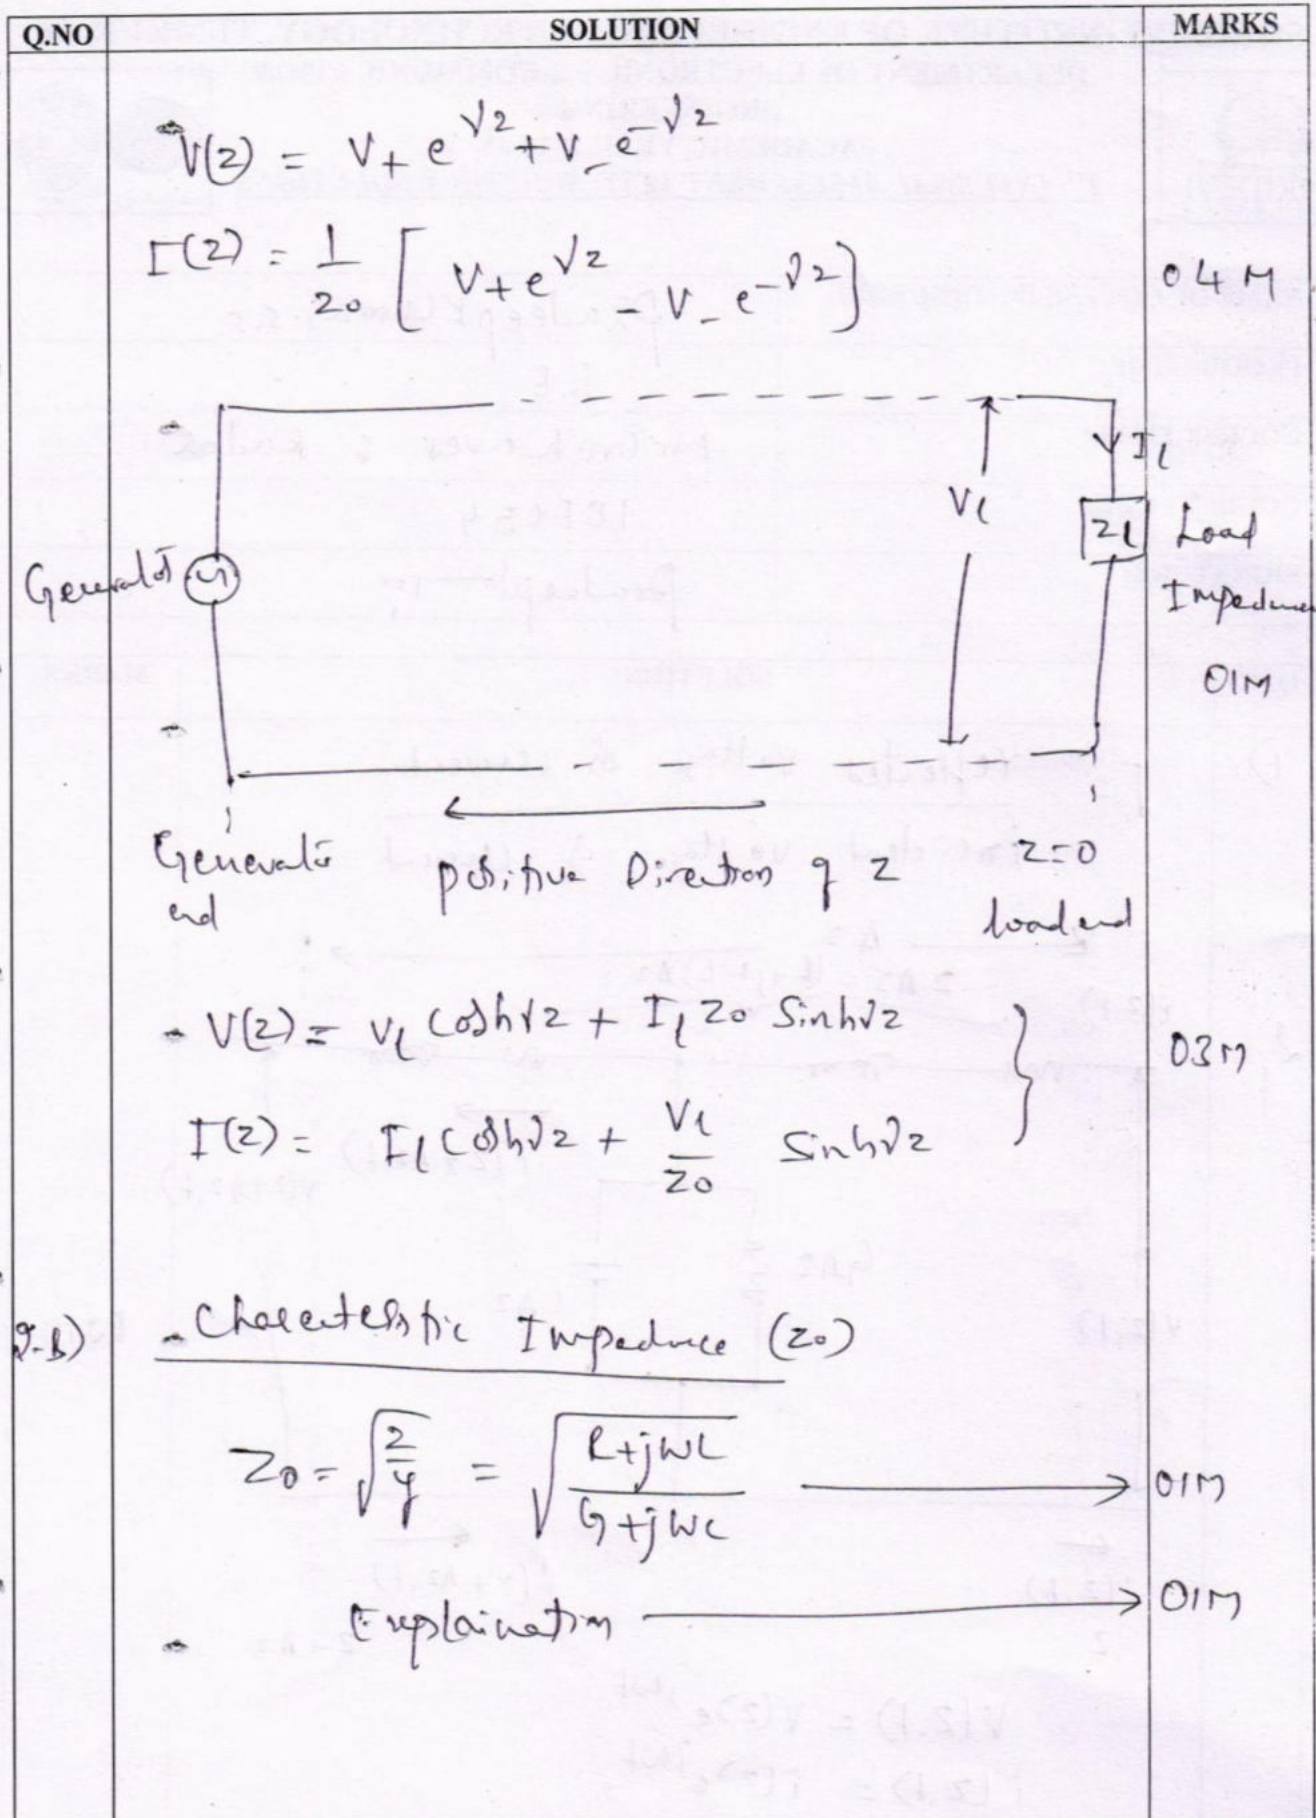 Q.NO SOLUTION MARKS
V(z) = V+ e^γz + V- e^-γz
I(z) = 1/z0 [ V+ e^γz - V- e^-γz ] 04M
Il
Vl
Zl Load
Generator Impedance
01M
Generator end positive Direction of z z=0
load end
V(z) = Vl Coshγz + Il z0 Sinhγz
03M
I(z) = Il Coshγz + Vl/z0 Sinhγz
Impedance (z0)
Z0 = √(z/y) = √((R+jωL)/(G+jωC)) → 01M
Explaination → 01M